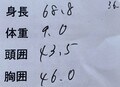 身長 68.8
体重 9.0
頭囲 43.5
胸囲 46.0